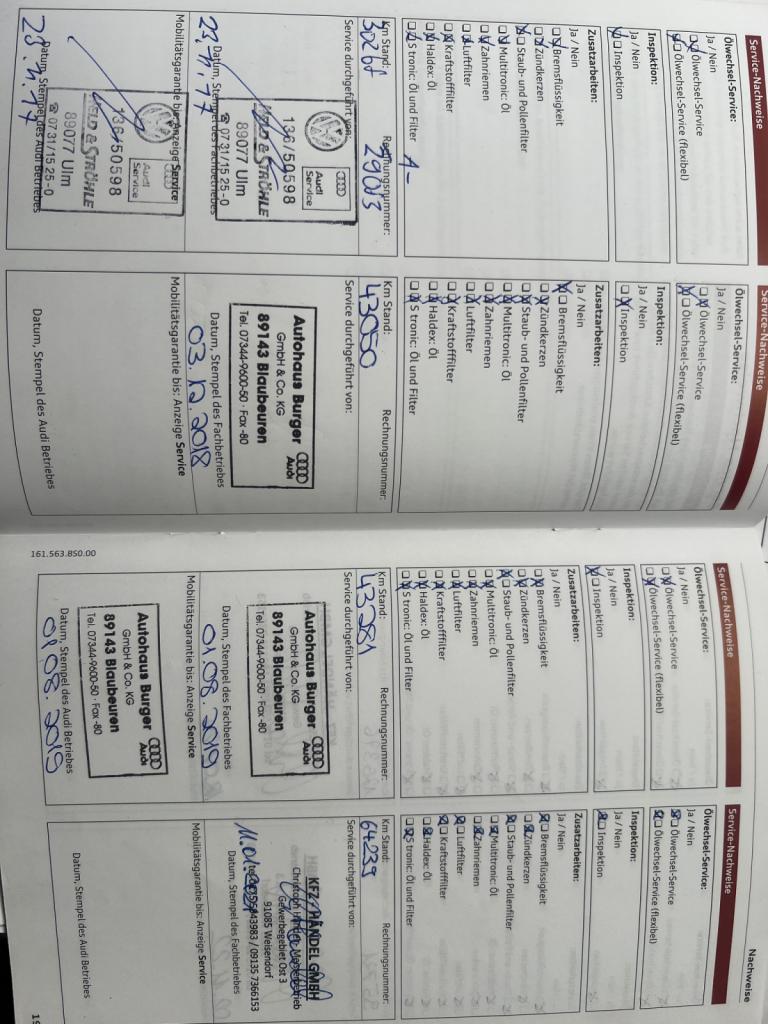 Service-Nachweise
Ölwechsel-Service:
Ja / Nein
Ölwechsel-Service
Ölwechsel-Service (flexibel)
Inspektion:
Ja / Nein
Inspektion
Zusatzarbeiten:
Ja / Nein
Bremsflüssigkeit
Zündkerzen
Staub- und Pollenfilter
Multitronic: Öl
Zahnriemen
Luftfilter
Kraftstofffilter
Haldex: Öl
S tronic: Öl und Filter
Km Stand:
Rechnungsnummer:
29013
Service durchgeführt von:
Audi
Service
136/50598
HELD & STRÖHLE
89077 Ulm
☎ 0731/15 25-0
Datum, Stempel des Fachbetriebes
23.11.17
Mobilitätsgarantie bis: Anzeige Service
Audi
Service
136/50598
HELD & STRÖHLE
89077 Ulm
☎ 0731/15 25-0
Datum, Stempel des Audi Betriebes
Service-Nachweise
Ölwechsel-Service:
Ja / Nein
Ölwechsel-Service
Ölwechsel-Service (flexibel)
Inspektion:
Ja / Nein
Inspektion
Zusatzarbeiten:
Ja / Nein
Bremsflüssigkeit
Zündkerzen
Staub- und Pollenfilter
Multitronic: Öl
Zahnriemen
Luftfilter
Kraftstofffilter
Haldex: Öl
S tronic: Öl und Filter
Km Stand:
Rechnungsnummer:
43050
Service durchgeführt von:
Autohaus Burger
Audi
GmbH & Co. KG
89143 Blaubeuren
Tel. 07344-9600-50 · Fax -80
Datum, Stempel des Fachbetriebes
03.12.2018
Mobilitätsgarantie bis: Anzeige Service
Datum, Stempel des Audi Betriebes
161.563.850.00
Service-Nachweise
Ölwechsel-Service:
Ja / Nein
Ölwechsel-Service
Ölwechsel-Service (flexibel)
Inspektion:
Ja / Nein
Inspektion
Zusatzarbeiten:
Ja / Nein
Bremsflüssigkeit
Zündkerzen
Staub- und Pollenfilter
Multitronic: Öl
Zahnriemen
Luftfilter
Kraftstofffilter
Haldex: Öl
S tronic: Öl und Filter
Km Stand:
Rechnungsnummer:
43281
Service durchgeführt von:
Autohaus Burger
Audi
GmbH & Co. KG
89143 Blaubeuren
Tel. 07344-9600-50 · Fax -80
Datum, Stempel des Fachbetriebes
01.08.2019
Mobilitätsgarantie bis: Anzeige Service
Autohaus Burger
Audi
GmbH & Co. KG
89143 Blaubeuren
Tel. 07344-9600-50 · Fax -80
Datum, Stempel des Audi Betriebes
01.08.2019
Nachweise
Service-Nachweise
Ölwechsel-Service:
Ja / Nein
Ölwechsel-Service
Ölwechsel-Service (flexibel)
Inspektion:
Ja / Nein
Inspektion
Zusatzarbeiten:
Ja / Nein
Bremsflüssigkeit
Zündkerzen
Staub- und Pollenfilter
Multitronic: Öl
Zahnriemen
Luftfilter
Kraftstofffilter
Haldex: Öl
S tronic: Öl und Filter
Km Stand:
Rechnungsnummer:
64239
Service durchgeführt von:
KFZ-HANDEL GMBH
Gewerbegebiet Ost 3
91085 Weisendorf
09135 7366153
Datum, Stempel des Fachbetriebes
Mobilitätsgarantie bis: Anzeige Service
Datum, Stempel des Audi Betriebes